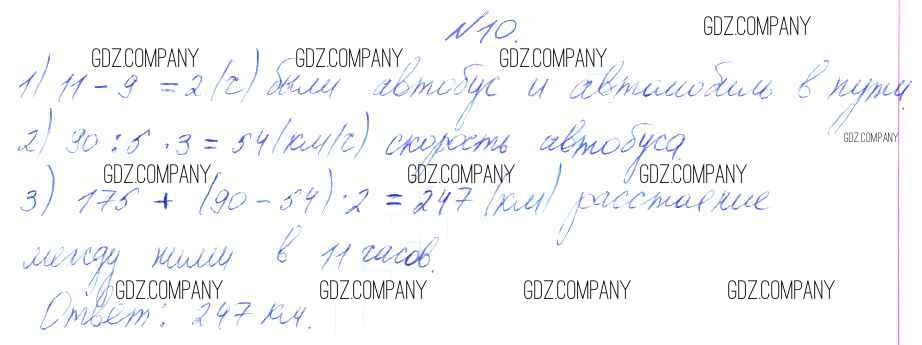 №10.
GDZ.COMPANY
GDZ.COMPANY GDZ.COMPANY GDZ.COMPANY
1) 11 - 9 = 2 (ч) были автобус и автомобиль в пути.
2) 90 : 5 · 3 = 54 (км/ч) скорость автобуса.
GDZ.COMPANY
GDZ.COMPANY GDZ.COMPANY GDZ.COMPANY
3) 175 + (90 - 54) · 2 = 247 (км) расстояние
между ними в 11 часов.
GDZ.COMPANY GDZ.COMPANY GDZ.COMPANY GDZ.COMPANY
Ответ: 247 км.